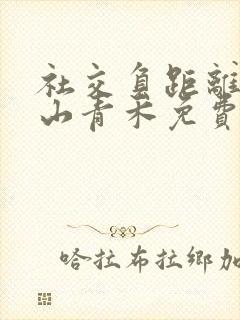 社交負距離
山青木免費
哈拉布拉鄉加